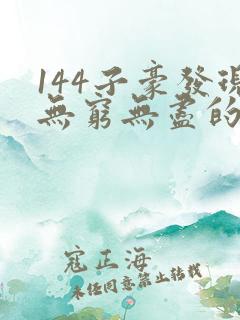 144子豪發現
無窮無盡的
寇正海
未經同意禁止轉載